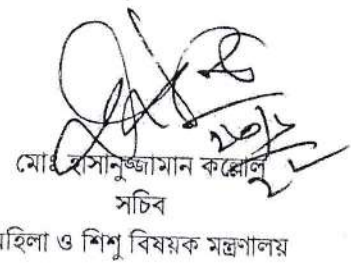 মোঃ হাসানুজ্জামান কল্লোল
সচিব
মহিলা ও শিশু বিষয়ক মন্ত্রণালয়